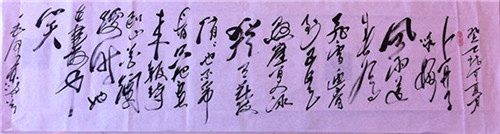 卜算子
咏梅
风雨送
春归
飞雪迎春
到已是
悬崖百丈冰
犹有花枝
俏俏也不争
春只把春
来报待
到山花烂
漫时她
在丛中
笑